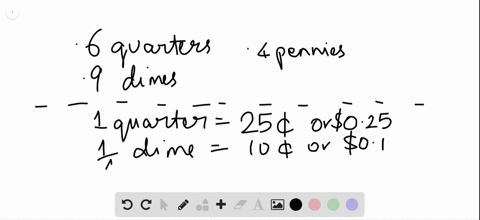 · 6 quarters · 4 pennies
· 9 dimes
1 quarter = 25¢ or $0.25
1 dime = 10¢ or $0.1